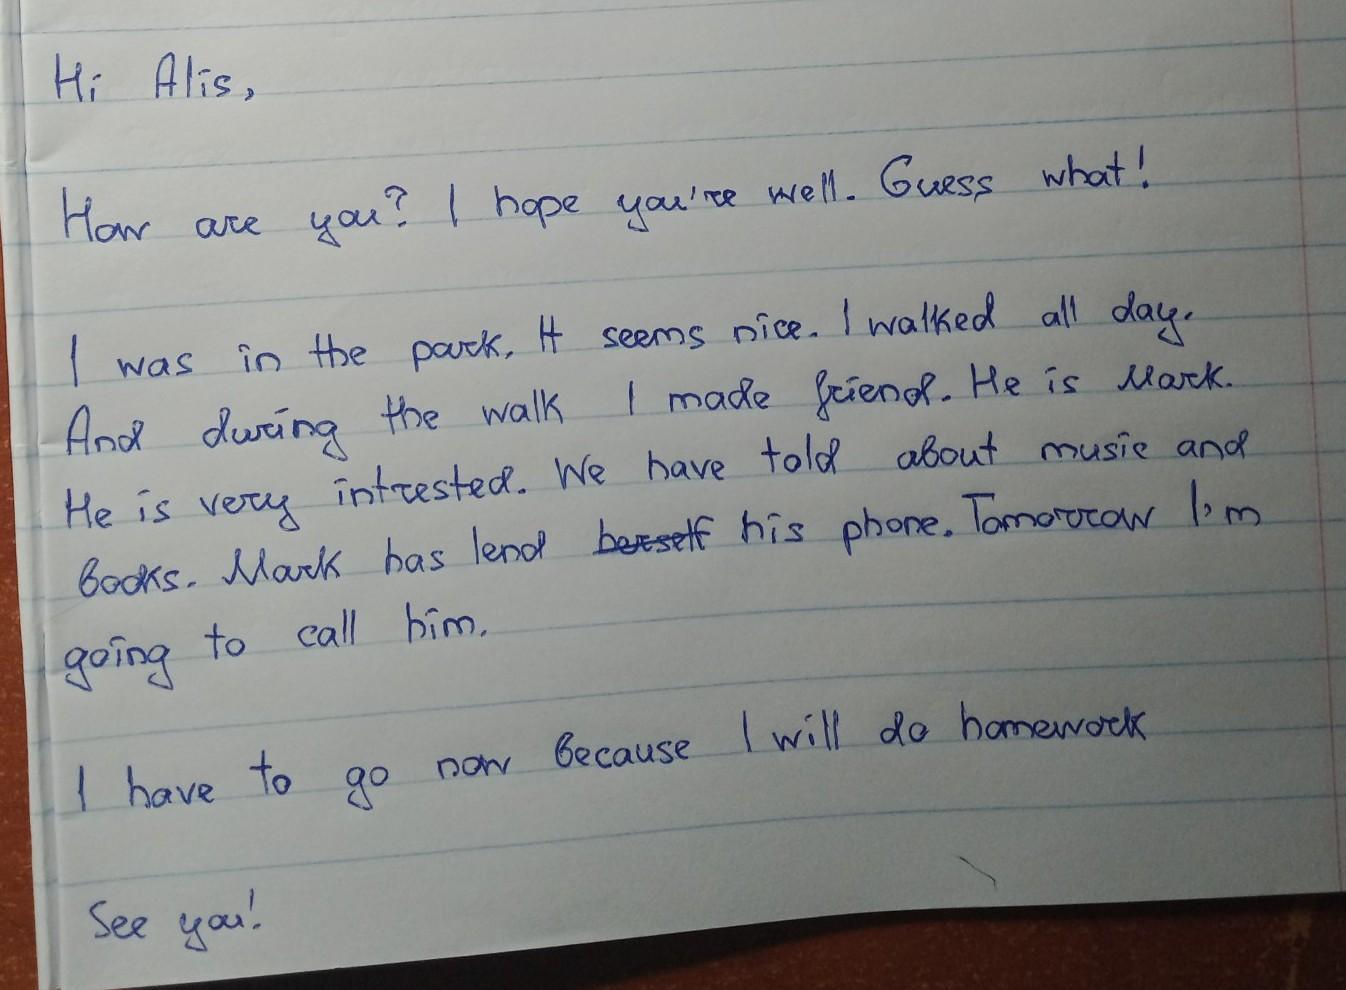 Hi Alis,
How are you? I hope you're well. Guess what!
I was in the park. It seems nice. I walked all day.
And during the walk I made friend. He is Mark.
He is very intrested. We have told about music and
books. Mark has lend herself his phone. Tomorrow I'm
going to call him.
I have to go now because I will do homework
See you!